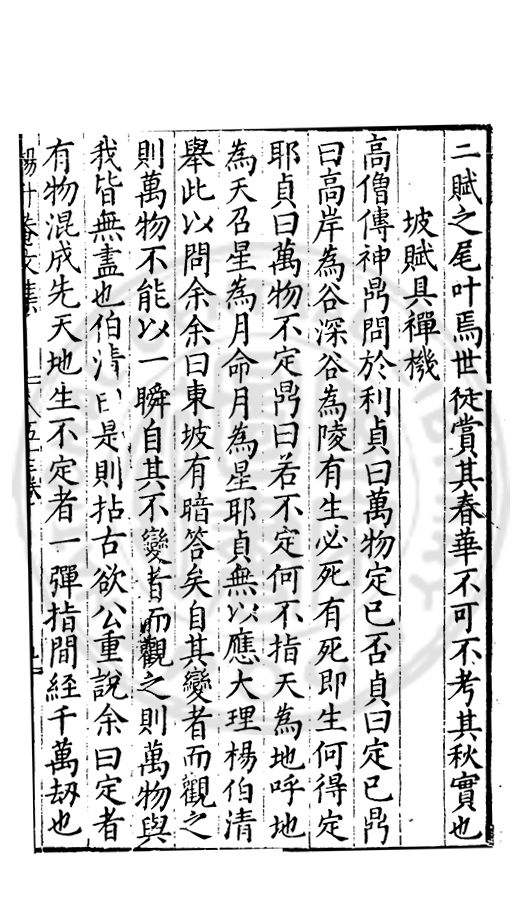 二賦之尾叶焉世徒賞其春華不可不考其秋實也
坡賦具禪機
高僧傳神鼎問於利貞曰萬物定已否貞曰定已鼎
曰高岸為谷深谷為陵有生必死有死即生何得定
耶貞曰萬物不定鼎曰若不定何不指天為地呼地
為天召星為月命月為星耶貞無以應大理楊伯清
舉此以問余余曰東坡有暗答矣自其變者而觀之
則萬物不能以一瞬自其不變者而觀之則萬物與
我皆無盡也伯清曰是則拈古欲公重說余曰定者
有物混成先天地生不定者一彈指間経千萬劫也
楊升菴文集